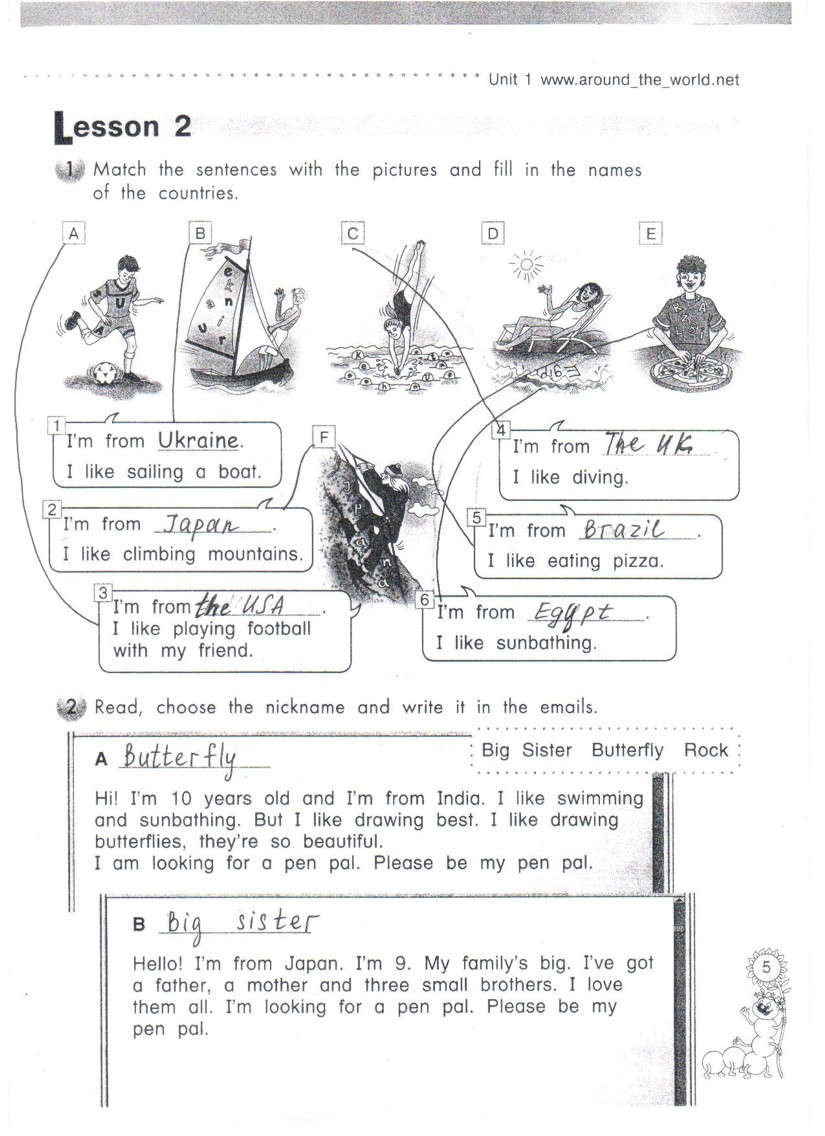 Unit 1 www.around_the_world.net
Lesson 2
1 Match the sentences with the pictures and fill in the names
of the countries.
A B C D E
1
I'm from Ukraine.
I like sailing a boat.
F
4
I'm from The UK
I like diving.
2
I'm from Japan.
I like climbing mountains.
5
I'm from Brazil.
I like eating pizza.
3
I'm from the USA.
I like playing football
with my friend.
6
I'm from Egypt.
I like sunbathing.
2 Read, choose the nickname and write it in the emails.
Big Sister Butterfly Rock
A Butterfly
Hi! I'm 10 years old and I'm from India. I like swimming
and sunbathing. But I like drawing best. I like drawing
butterflies, they're so beautiful.
I am looking for a pen pal. Please be my pen pal.
B Big sister
Hello! I'm from Japan. I'm 9. My family's big. I've got
a father, a mother and three small brothers. I love
them all. I'm looking for a pen pal. Please be my
pen pal.
5